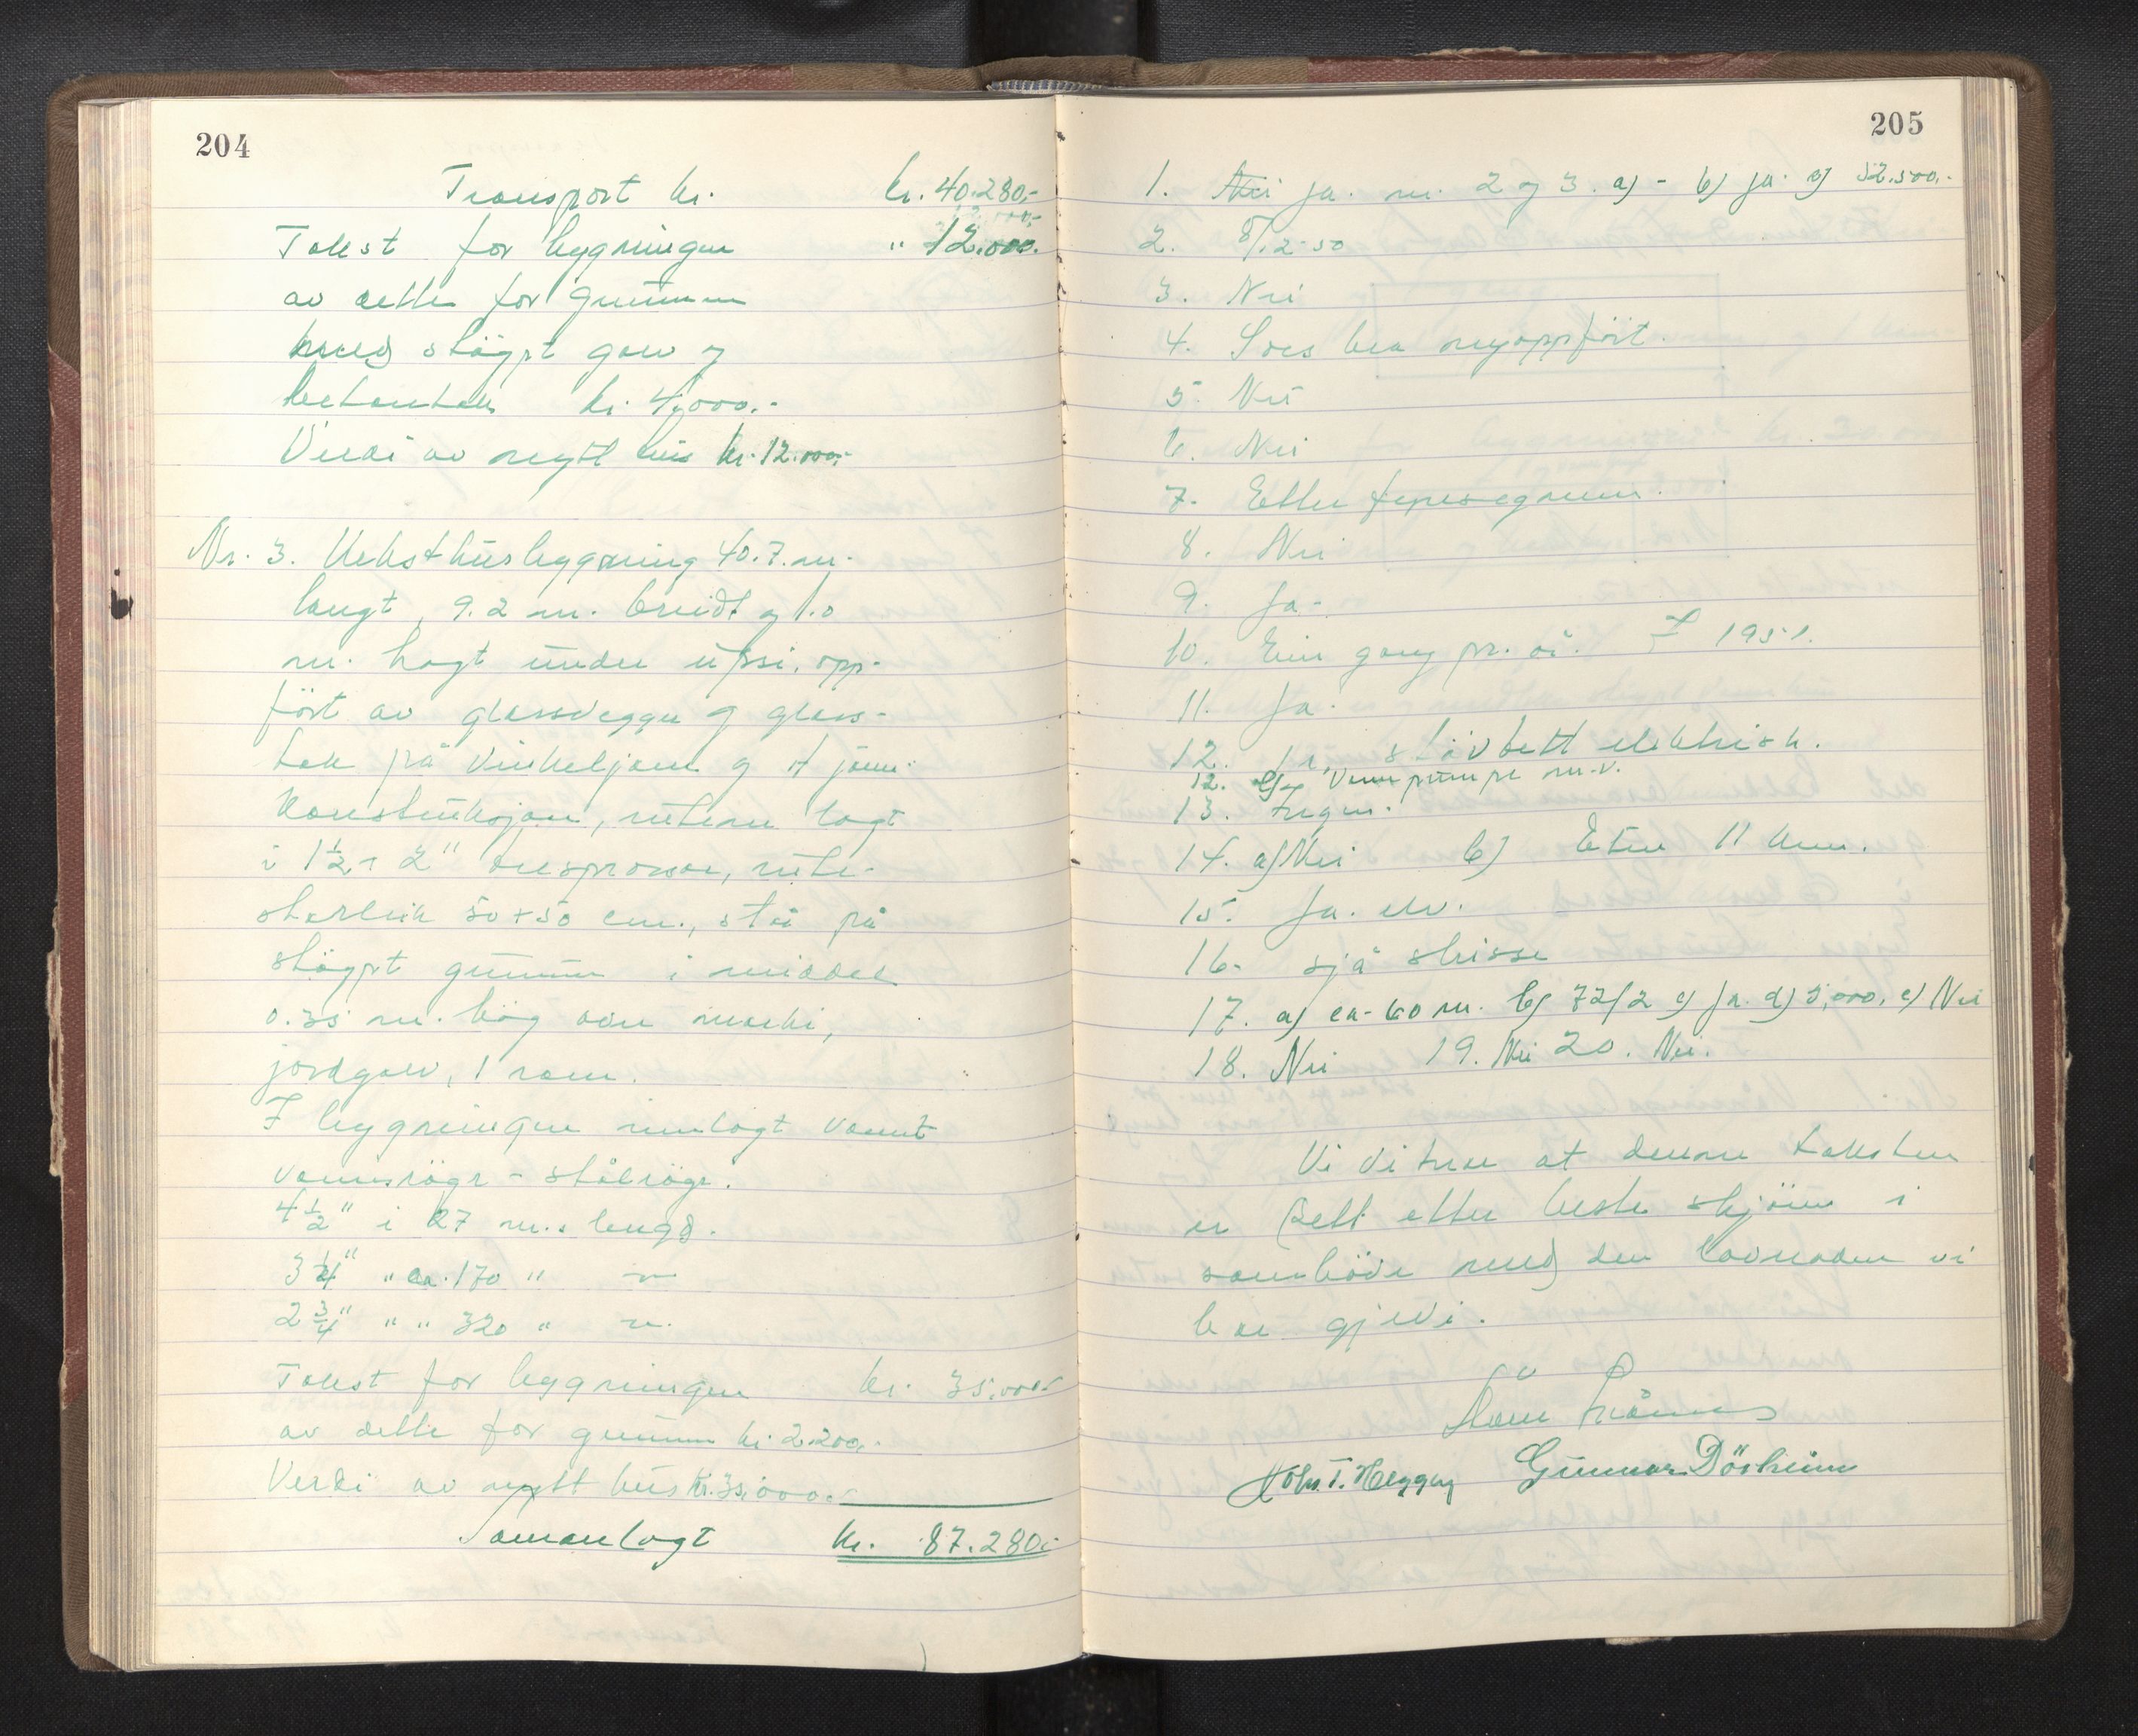 204
Transport kr. kr. 40.280,-
Takst for bygningen " 12.000.
av dette for grunnen
med støypt golv og
betontak kr. 4,000.-
Verdi av nytt hus kr. 12.000,-
Nr. 3. Veksthusbygning 40.7. m.
langt, 9.2 m. breidt og 1.0
m. høgt under upsi, opp-
ført av glassveggr og glass-
tak på vinkeljern og H jern-
konstruksjon, rutene lagt
i 1½ x 2" tresprosser, rute-
storleik 50x50 cm., står på
støypt grunnmur i middel
0.35 m. høg over marki,
jordgolv, 1 rom.
I bygningen innlagt varmt
vannrøyr - stålrøyr.
4½" i 27 m.s lengd.
3¼" " ca. 170 " "
2¾" " " 320 " "
Takst for bygningen kr. 35.000,-
av dette for grunnen kr. 2.200,-
Verdi av nytt hus kr. 35,000.-
Samanlagt kr. 87.280,-
205
1. Nei ja. nr. 2 og 3. a) - b) ja. c) 52.500,-
2. 8/12-50
3. Nei
4. Soes bra nyoppført.
5. Nei
6. Nei
7. Etter
8. Nei
9. Ja -
10. Ein gong pr. år. I 1951.
11. Ja.
12. Ja, støvtett elektrisk.
12. pumpe m.v.
13. Ingen.
14. a) Nei b) Etne 11 km.
15. Ja. elv.
16. sjå skisse
17. a) ca. 60 m. b) 72/2 c) Ja. d) 5,000, e) Nei
18. Nei 19. Nei 20. Nei.
Vi vitnar at denne taksten
er sett etter beste skjøn i
samhøve med den lovnaden vi
har gjevi.
Johs. T. Heggen Gunnar Dörheim